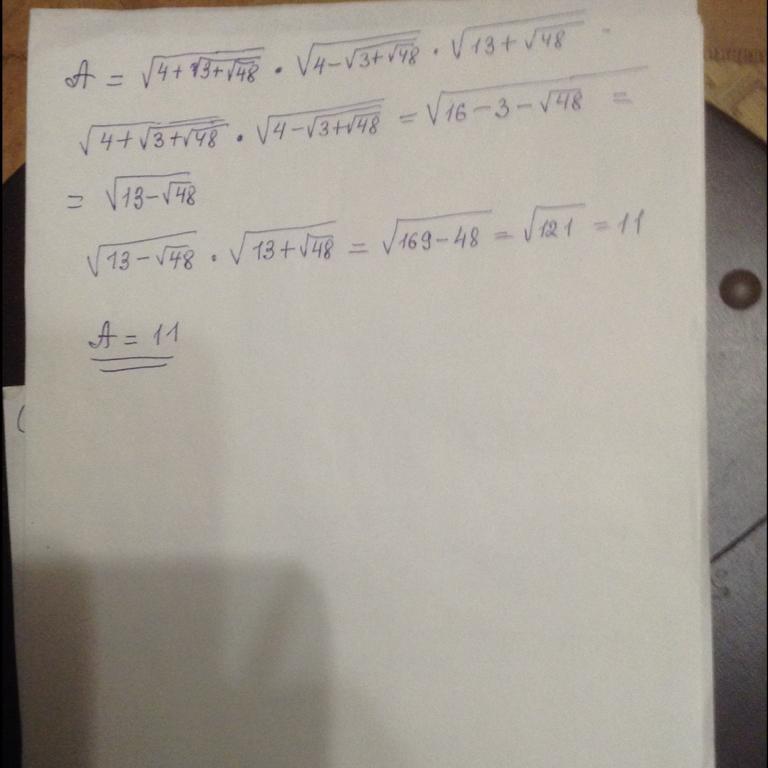 A = √(4+√(3+√48)) · √(4-√(3+√48)) · √(13+√48)
√(4+√(3+√48)) · √(4-√(3+√48)) = √(16-3-√48) =
= √(13-√48)
√(13-√48) · √(13+√48) = √(169-48) = √121 = 11
A = 11